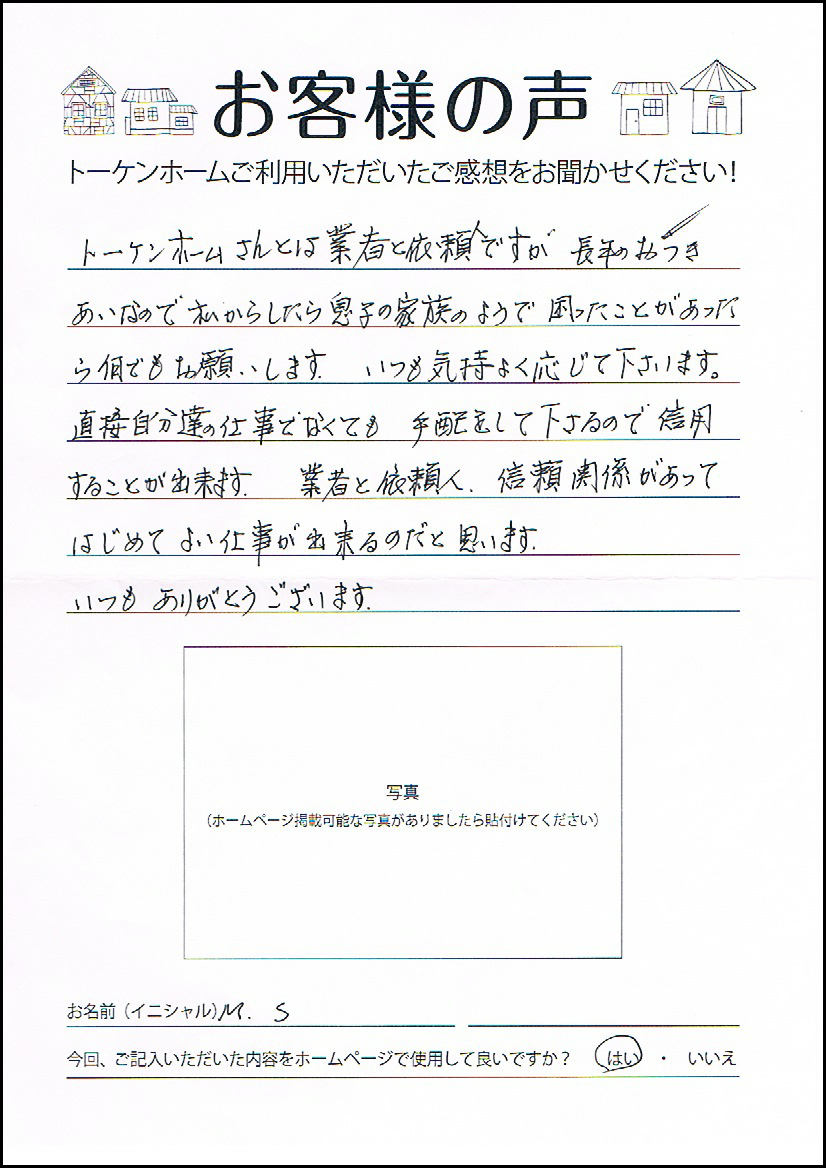 お客様の声
トーケンホームご利用いただいたご感想をお聞かせください！
トーケンホームさんとは業者と依頼人ですが 長年のおつき
あいなので私からしたら息子の家族のようで 困ったことがあった
ら何でもお願いします。 いつも気持よく応じて下さいます。
直接自分達の仕事でなくても 手配をして下さるので信用
することが出来ます。 業者と依頼人、信頼関係があって
はじめてよい仕事が出来るのだと思います。
いつもありがとうございます。
写真
（ホームページ掲載可能な写真がありましたら貼付けてください）
お名前（イニシャル）M. S
今回、ご記入いただいた内容をホームページで使用して良いですか？ はい ・ いいえ